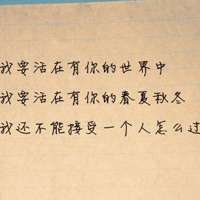 我要活在有你的世界中
我要活在有你的春夏秋冬
我还不能接受一个人怎么过